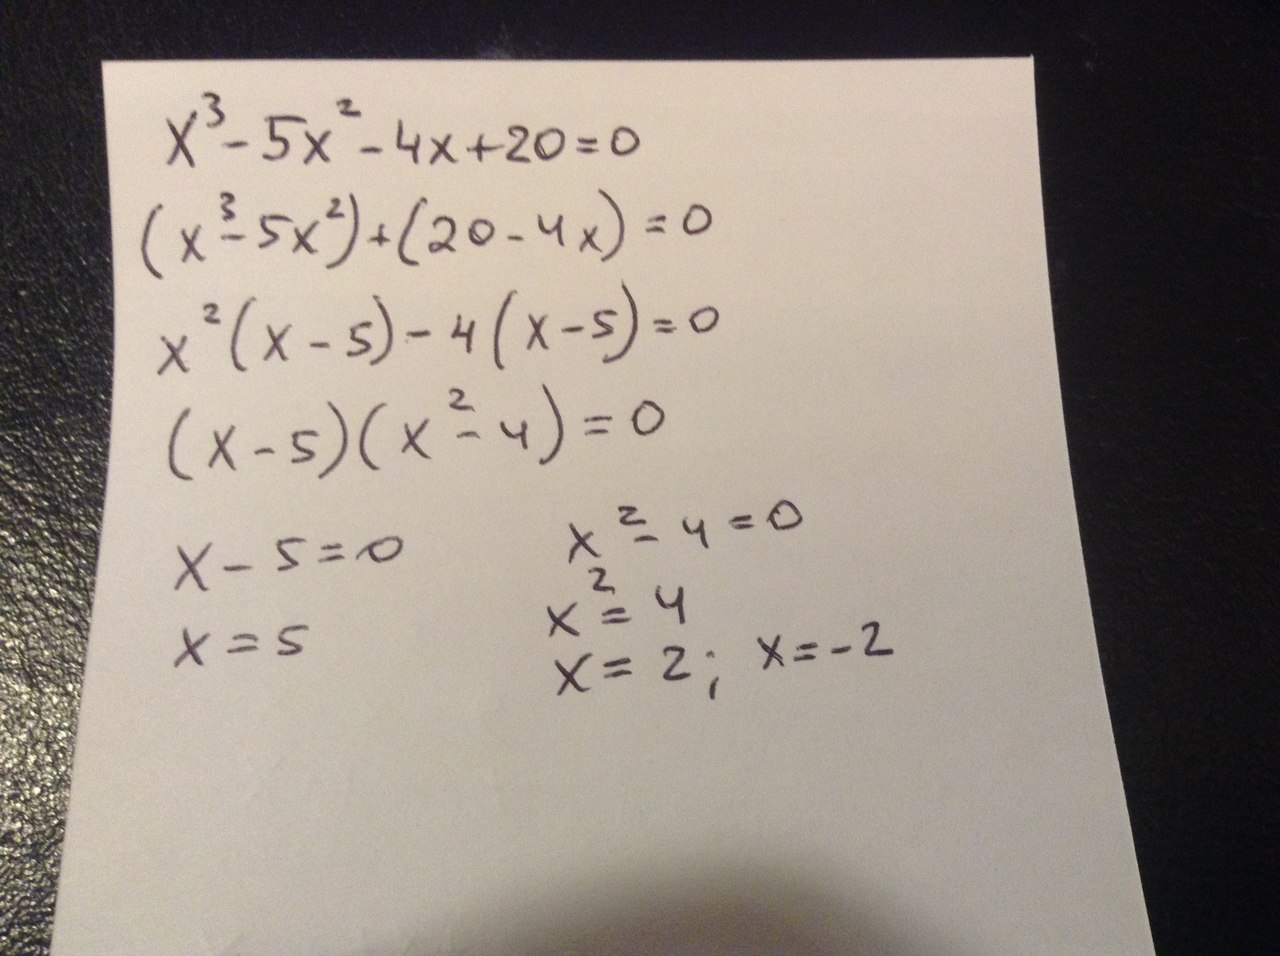 x³ - 5x² - 4x + 20 = 0
(x³ - 5x²) + (20 - 4x) = 0
x²(x - 5) - 4(x - 5) = 0
(x - 5)(x² - 4) = 0
x - 5 = 0
x = 5
x² - 4 = 0
x² = 4
x = 2; x = -2